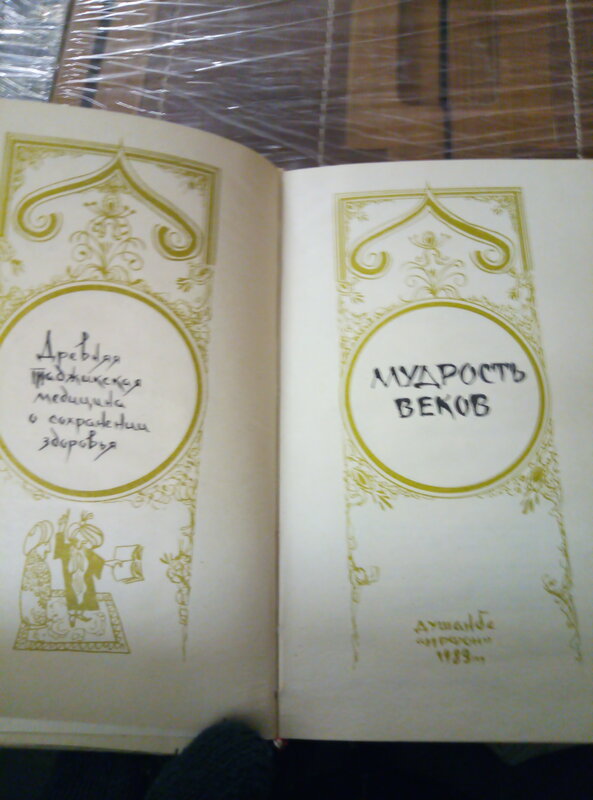 Древняя
таджикская
медицина
о сохранении
здоровья
МУДРОСТЬ
ВЕКОВ
Душанбе
"Ирфон"